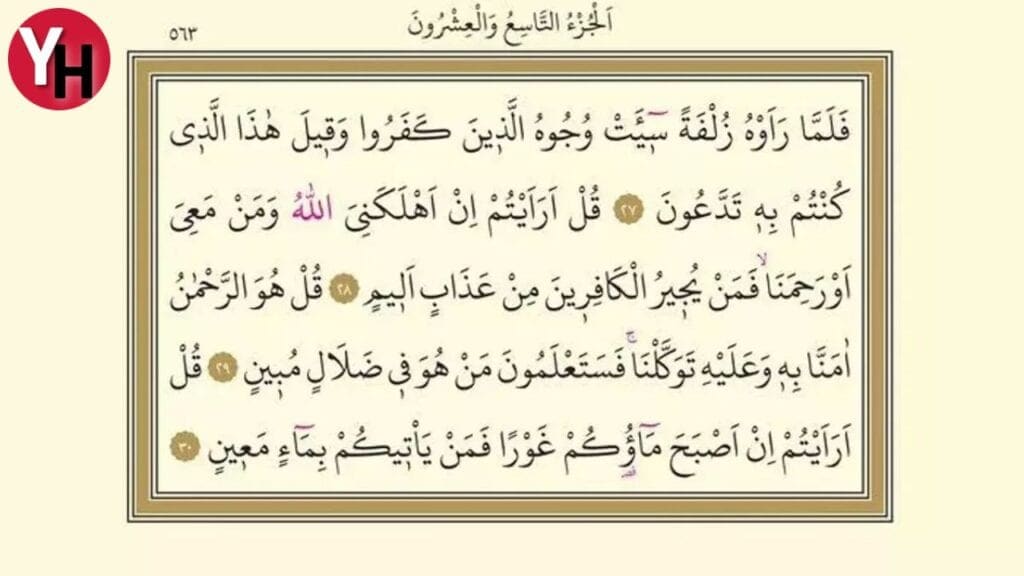 YH
٥٦٣
اَلْجُزْءُ التَّاسِعُ وَالْعِشْرُونَ
فَلَمَّا رَاَوْهُ زُلْفَةً سٓيـَٔتْ وُجُوهُ الَّذ۪ينَ كَفَرُوا وَق۪يلَ هٰذَا الَّذ۪ي
كُنْتُمْ بِه۪ تَدَّعُونَ ﴿٢٧﴾ قُلْ اَرَاَيْتُمْ اِنْ اَهْلَكَنِيَ اللّٰهُ وَمَنْ مَعِيَ
اَوْ رَحِمَنَاۙ فَمَنْ يُج۪يرُ الْكَافِر۪ينَ مِنْ عَذَابٍ اَل۪يمٍ ﴿٢٨﴾ قُلْ هُوَ الرَّحْمٰنُ
اٰمَنَّا بِه۪ وَعَلَيْهِ تَوَكَّلْنَاۚ فَسَتَعْلَمُونَ مَنْ هُوَ ف۪ي ضَلَالٍ مُب۪ينٍ ﴿٢٩﴾ قُلْ
اَرَاَيْتُمْ اِنْ اَصْبَحَ مَٓاؤُ۬كُمْ غَوْرًا فَمَنْ يَأْت۪يكُمْ بِمَٓاءٍ مَع۪ينٍ ﴿٣٠﴾